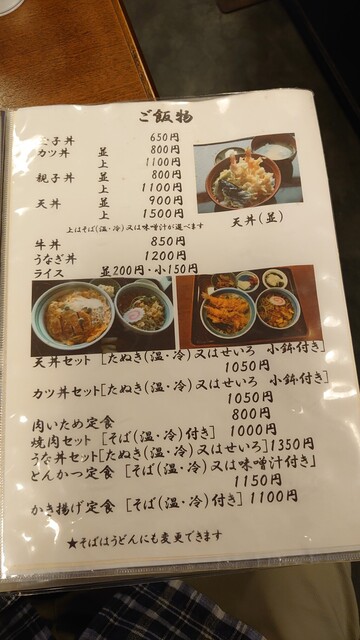 ご飯物
玉子丼 650円
カツ丼 並 800円
上 1100円
親子丼 並 800円
上 1100円
天丼 並 900円
上 1500円
上はそば(温・冷)又は味噌汁が選べます
天丼(並)
牛丼 850円
うなぎ丼 1200円
ライス 並200円・小150円
天丼セット[たぬき(温・冷)又はせいろ 小鉢付き]
1050円
カツ丼セット[たぬき(温・冷)又はせいろ 小鉢付き]
1050円
肉いため定食 800円
焼肉セット[そば(温・冷)付き] 1000円
うな丼セット[たぬき(温・冷)又はせいろ]1350円
とんかつ定食[そば(温・冷)又は味噌汁付き」
1150円
かき揚げ定食[そば(温・冷)付き] 1100円
★そばはうどんにも変更できます